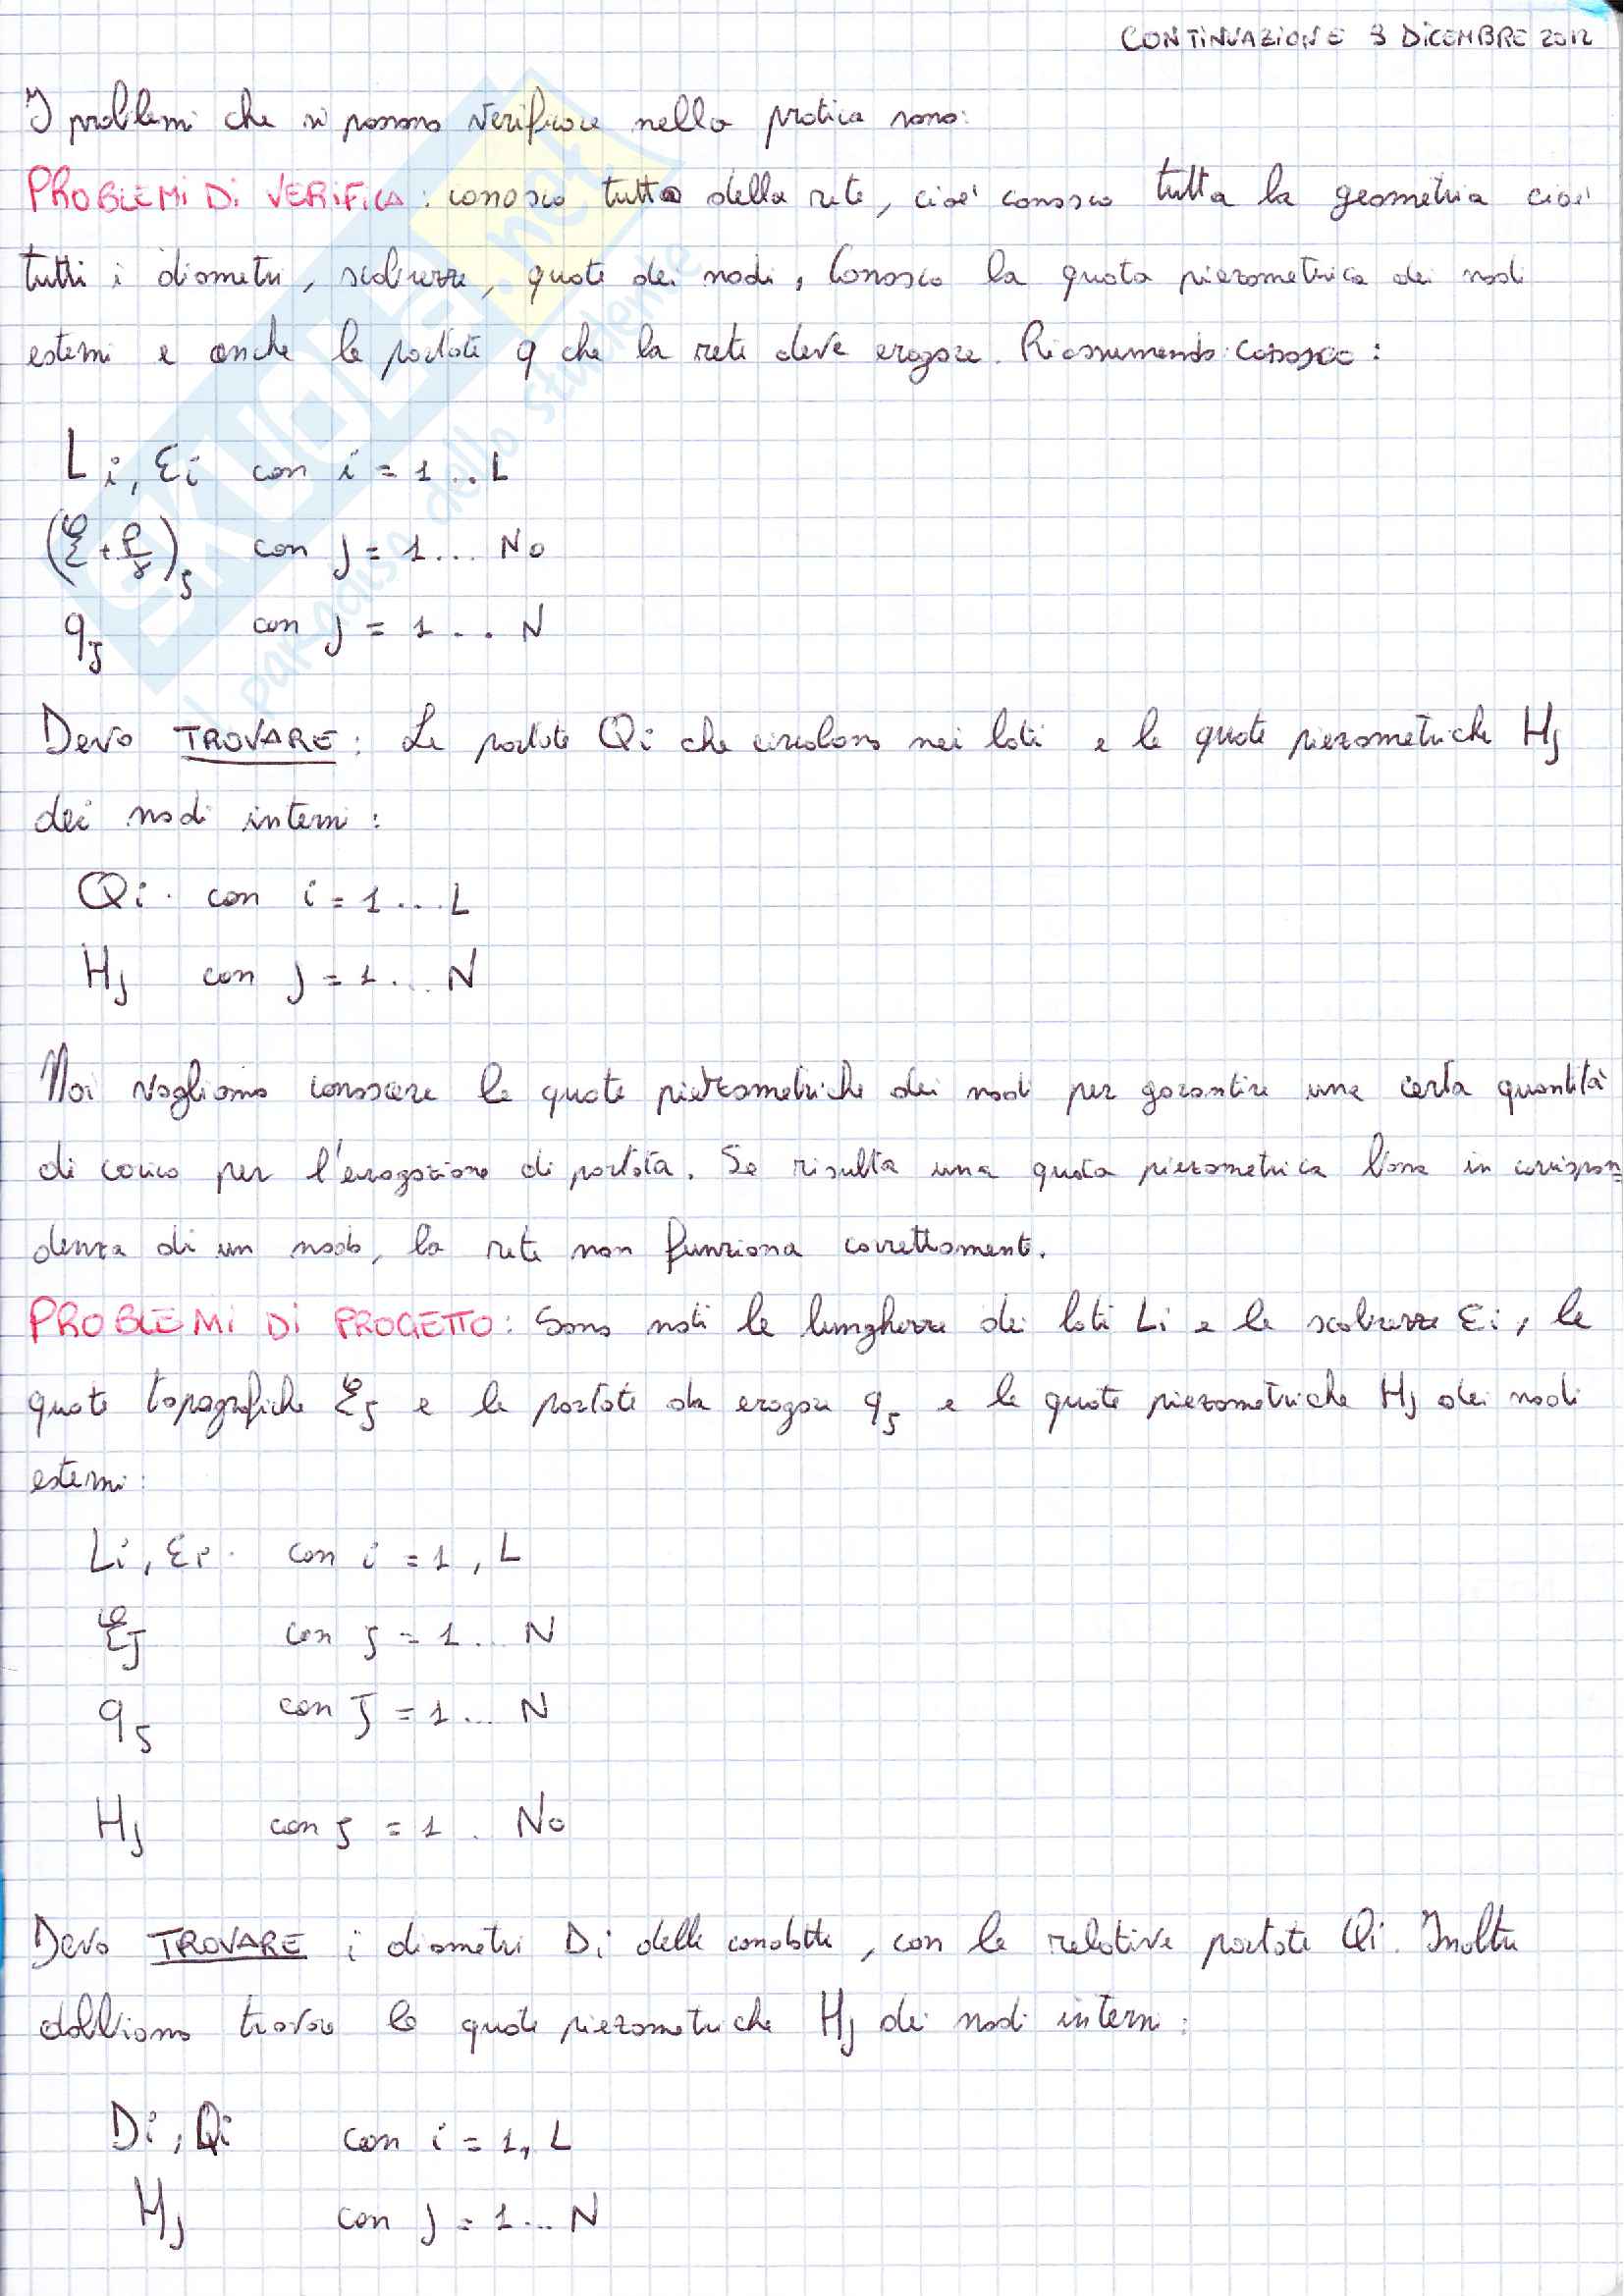 CONTINUAZIONE 3 DICEMBRE 2012
I problemi che si possono verificare nella pratica sono:
PROBLEMI DI VERIFICA: conosco tutto della rete, cioè conosco tutta la geometria cioè
tutti i diametri, scabrezze, quote dei nodi, conosco la quota piezometrica dei nodi
esterni e anche le portate q che la rete deve erogare. Riassumendo: conosco:
Li, εi con i = 1 ... L
(ξ + P/γ)j con j = 1 ... No
qj con j = 1 ... N
Devo TROVARE: Le portate Qi che circolano nei lati e le quote piezometriche Hj
dei nodi interni:
Qi con i = 1 ... L
Hj con j = 1 ... N
Noi vogliamo conoscere le quote piezometriche dei nodi per garantire una certa quantità
di carico per l'erogazione di portata. Se risulta una quota piezometrica bassa in corrispon=
denza di un nodo, la rete non funziona correttamente.
PROBLEMI DI PROGETTO: Sono noti le lunghezze dei lati Li e le scabrezze εi, le
quote topografiche ξj e le portate da erogare qj e le quote piezometriche Hj dei nodi
esterni:
Li, εi con i = 1, L
ξj con j = 1 ... N
qj con j = 1 ... N
Hj con j = 1 . No
Devo TROVARE i diametri Di delle condotte, con le relative portate Qi. Inoltre
dobbiamo trovare le quote piezometriche Hj dei nodi interni:
Di, Qi con i = 1, L
Hj con j = 1 ... N
SKUOLA.net
il paradiso dello studente